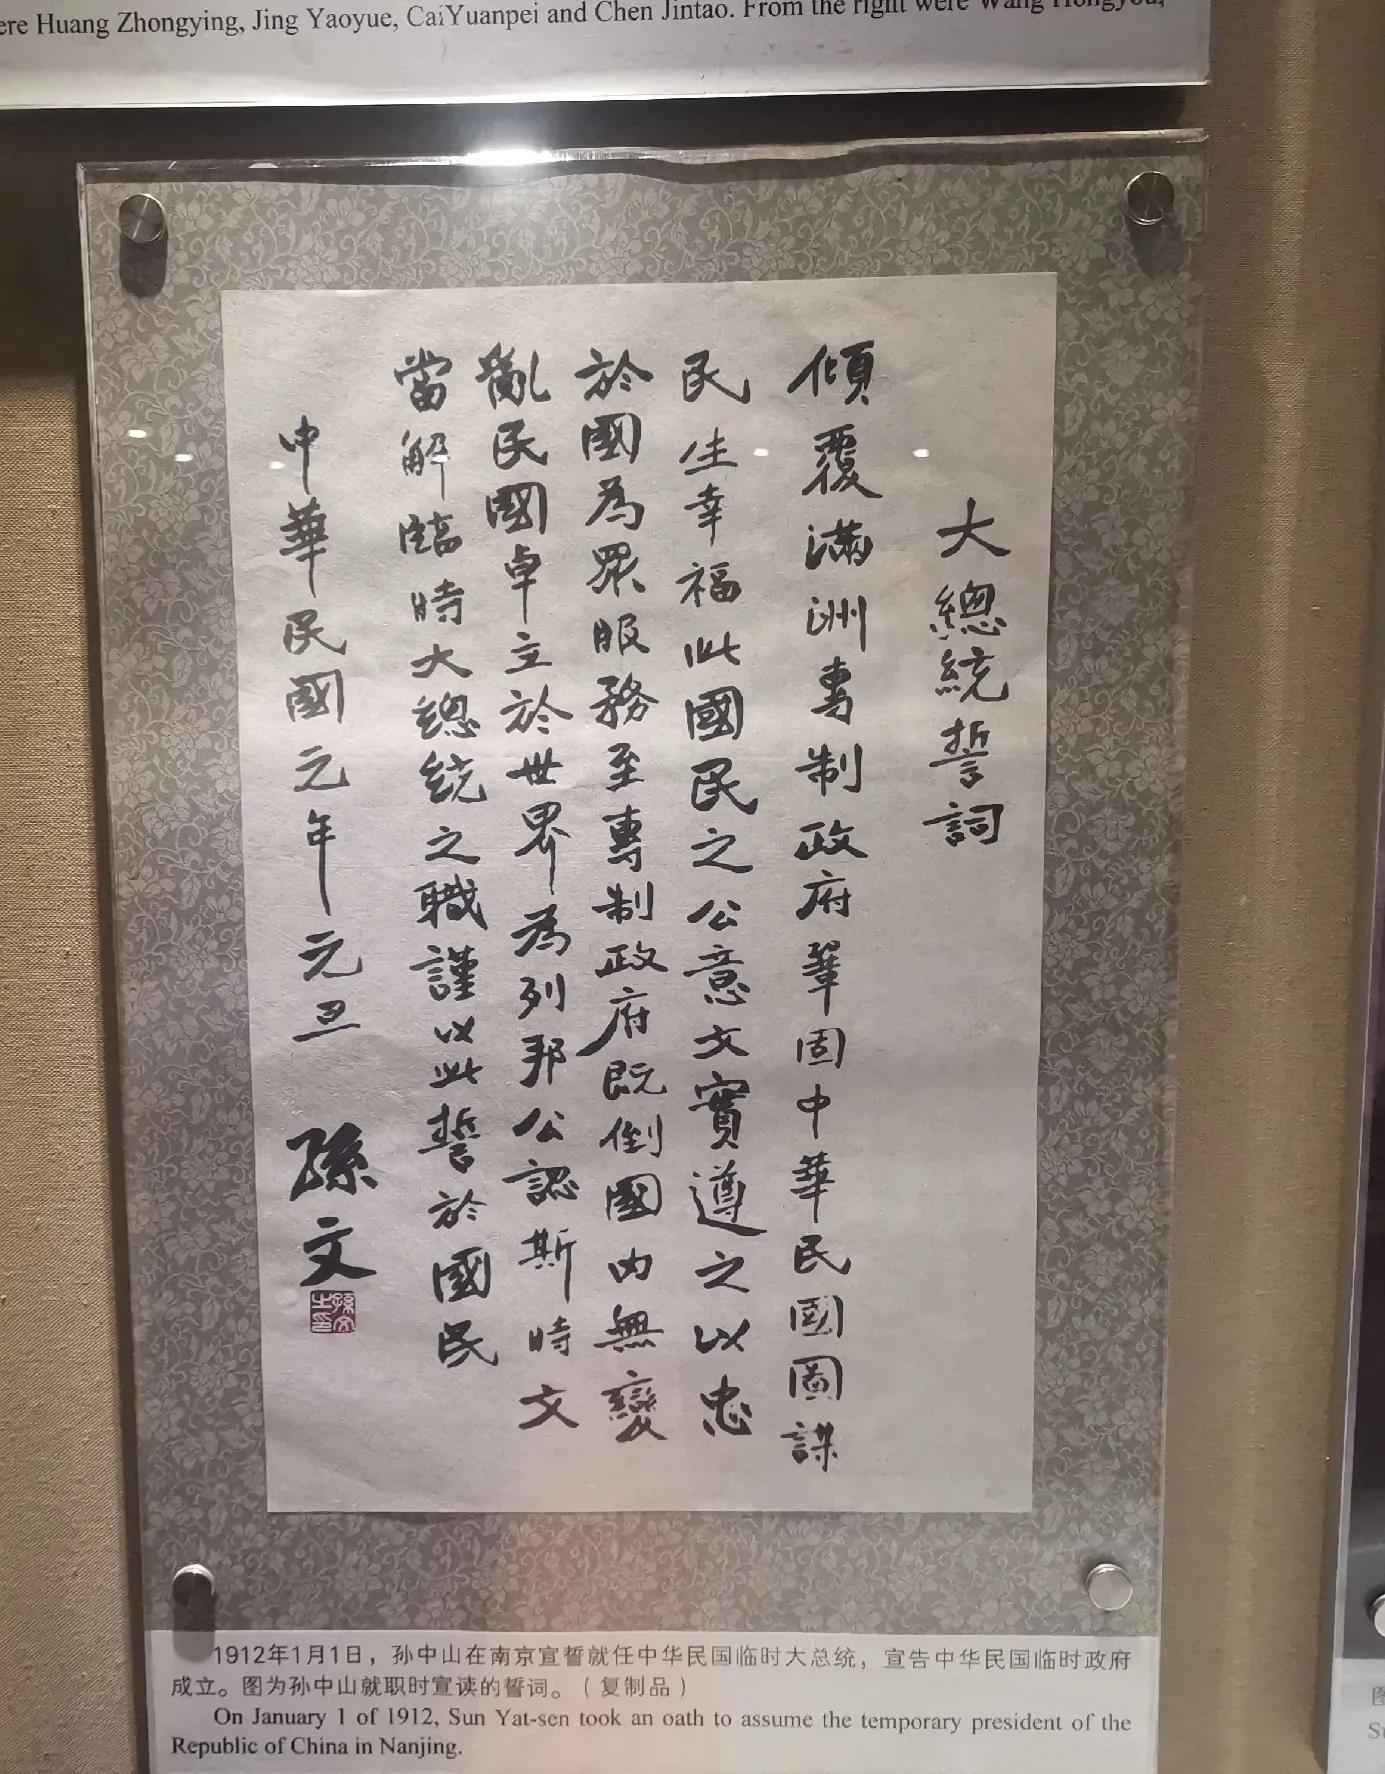 ere Huang Zhongying, Jing Yaoyue, CaiYuanpei and Chen Jintao. From the right were Wang Hongyou,
大總統誓詞
傾覆滿洲專制政府鞏固中華民國圖謀
民生幸福此國民之公意文實遵之以忠
於國為眾服務至專制政府既倒國內無變
亂民國卓立於世界為列邦公認斯時文
當解臨時大總統之職謹以此誓於國民
中華民國元年元旦 孫文
孫文之印
1912年1月1日，孙中山在南京宣誓就任中华民国临时大总统，宣告中华民国临时政府
成立。图为孙中山就职时宣读的誓词。（复制品）
On January 1 of 1912, Sun Yat-sen took an oath to assume the temporary president of the
Republic of China in Nanjing.